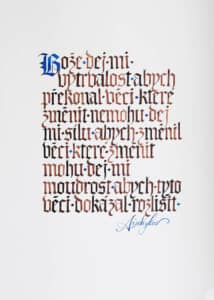 Bože·dej·mi·
vytrvalost·abych
překonal·věci·které
změnit·nemohu·dej
mi·sílu·abych·změnil
věci·které·změnit
mohu·dej·mi
moudrost·abych·tyto
věci·dokázal·rozlišit·